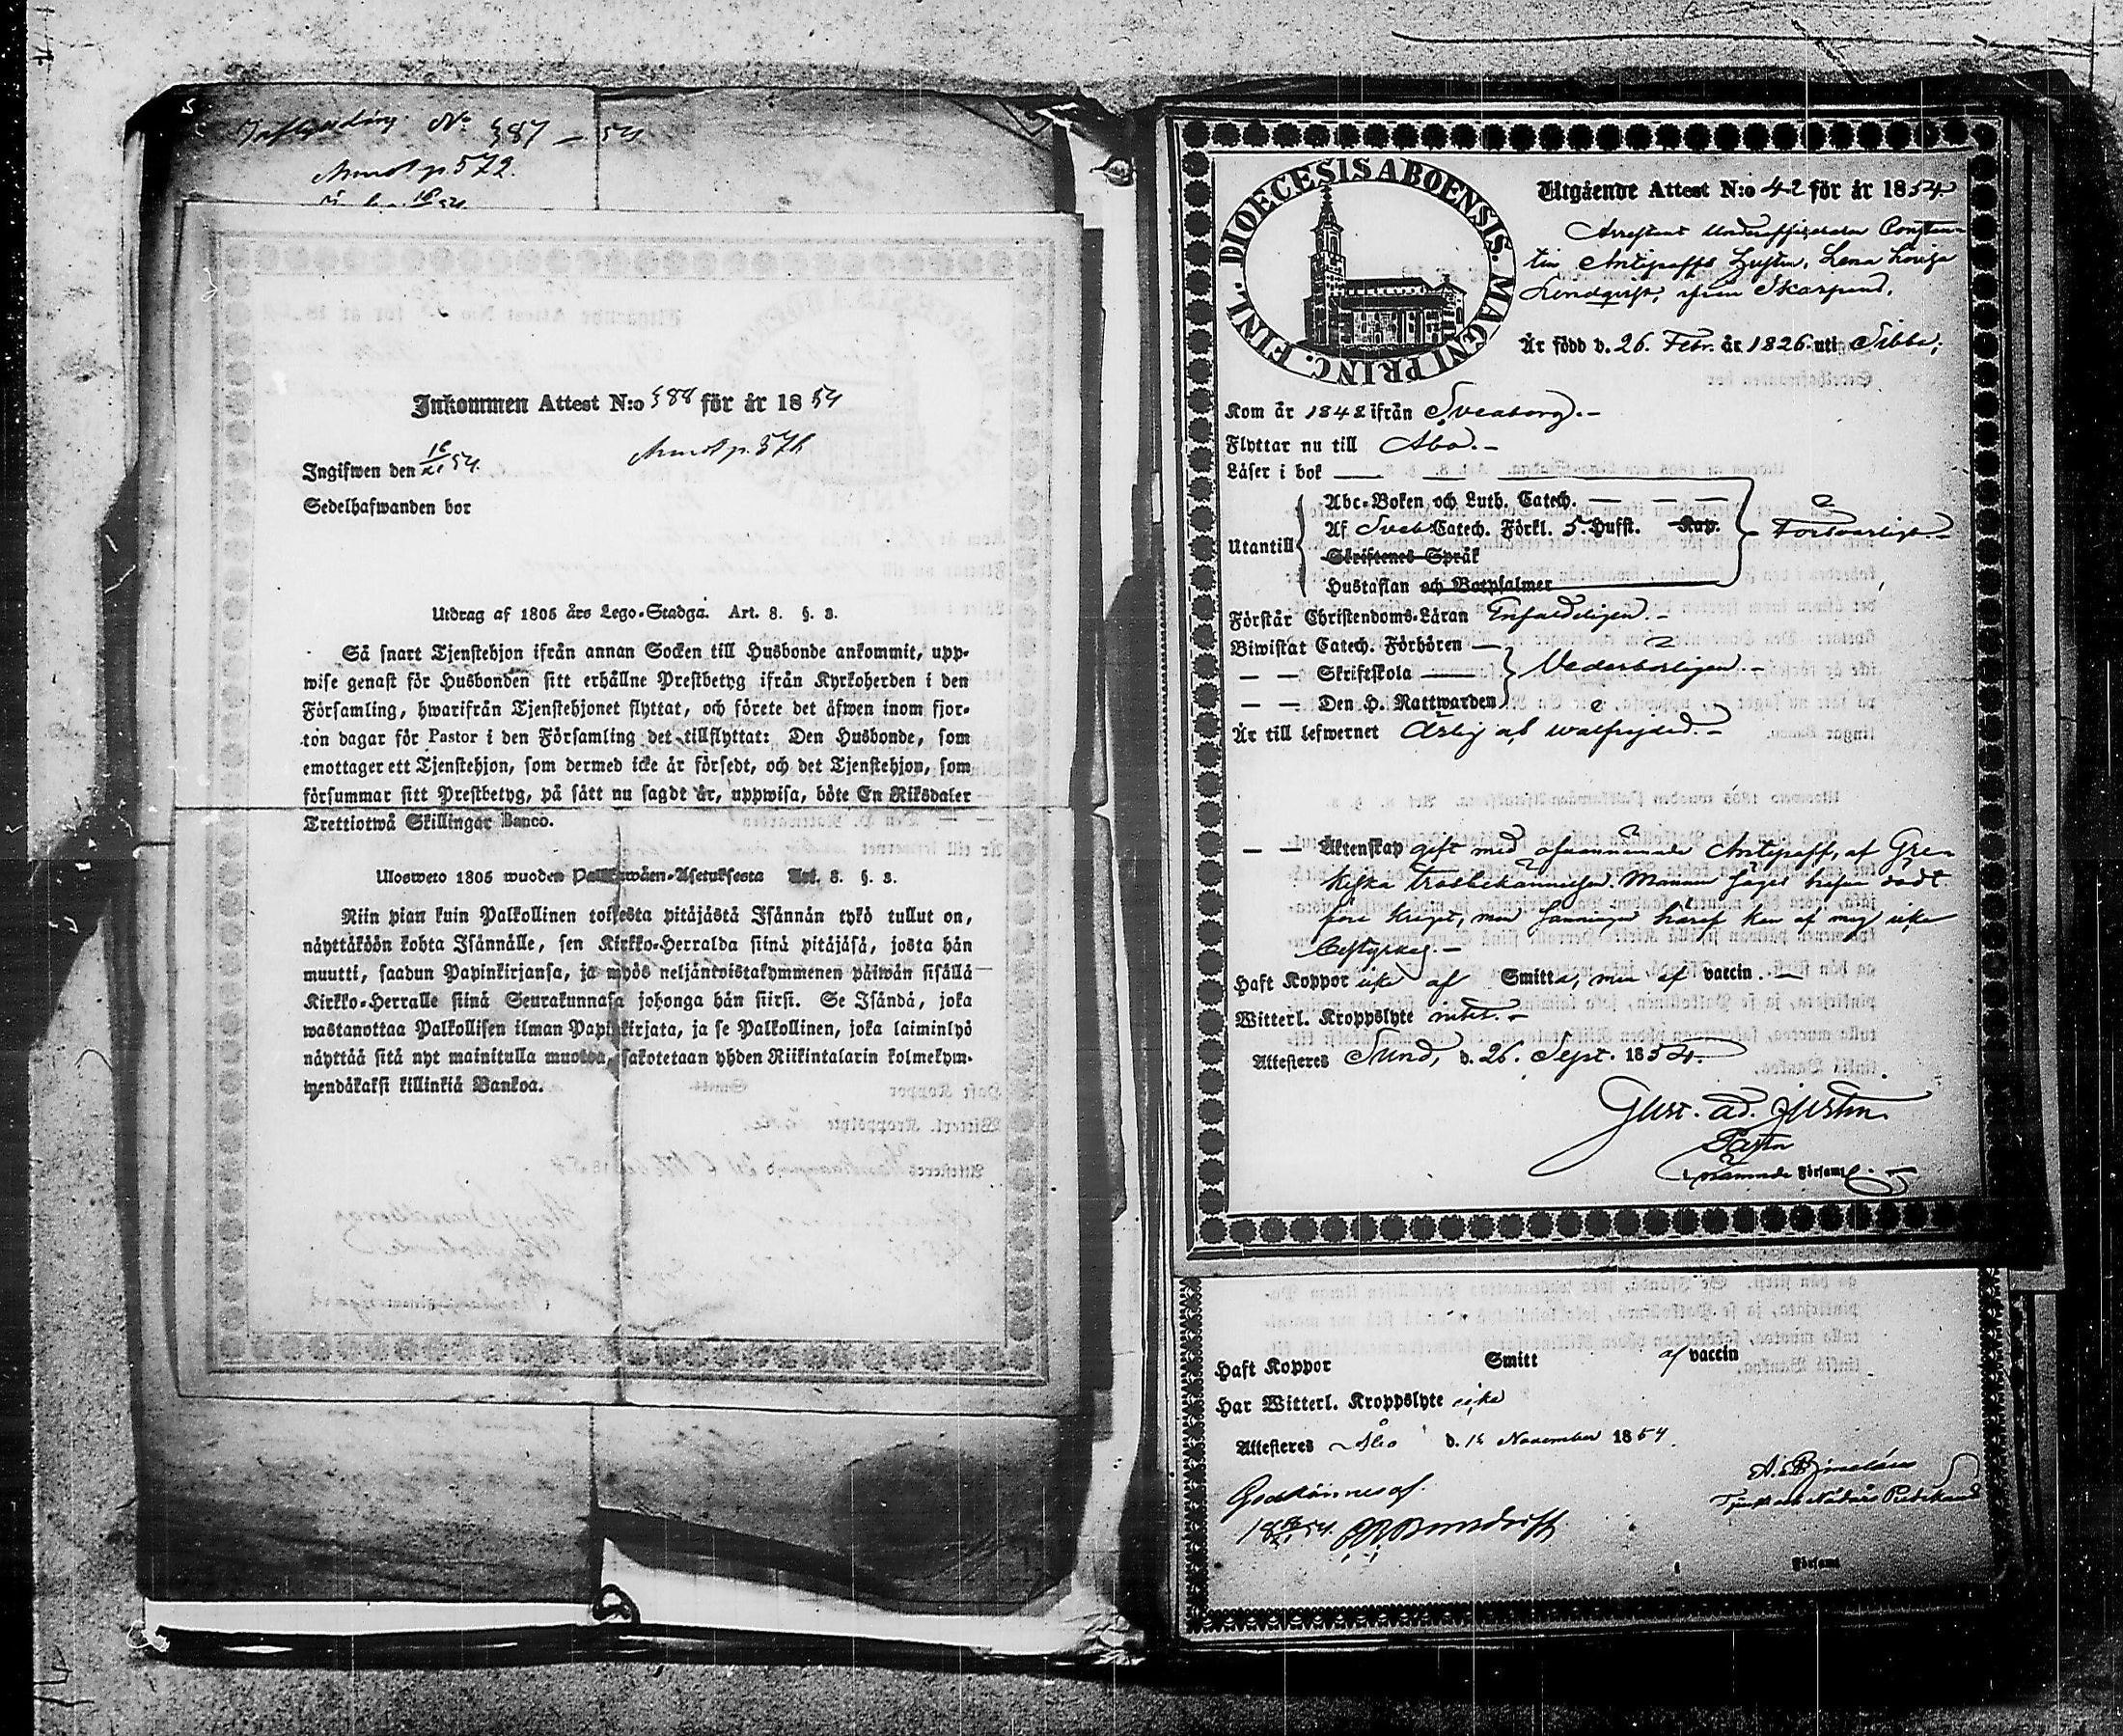 Inflyttning No 387 – 54
p. 572.
Inkommen Attest N:o 388 för år 1854
Ingifwen den 16/XI 54.
Sedelhafwanden bor
Utdrag af 1805 års Lego-Stadga. Art. 8. §. 3.
Så snart Tjenstehjon ifrån annan Socken till Husbonde ankommit, upp-
wise genast för Husbonden sitt erhållne Prestbetyg ifrån Kyrkoherden i den
Församling, hwarifrån Tjenstehjonet flyttat, och förete det äfwen inom fjor-
ton dagar för Pastor i den Församling det tillflyttat: Den Husbonde, som
emottager ett Tjenstehjon, som dermed icke är försedt, och det Tjenstehjon, som
försummar sitt Prestbetyg, på sätt nu sagdt är, uppwisa, böte En Riksdaler
Trettiotwå Skillingar Banco.
Ulosweto 1805 wuoden Palkkawäen-Asetuksesta Art. 8. §. 3.
Niin pian kuin Palkollinen toisesta pitäjästä Isännän tykö tullut on,
näyttäköön kohta Isännälle, sen Kirkko-Herralda siinä pitäjäsä, josta hän
muutti, saadun Papinkirjansa, ja myös neljäntoistakymmenen päiwän sisällä
Kirkko-Herralle siinä Seurakunnasa johonga hän siirsi. Se Isändä, joka
wastanottaa Palkollisen ilman Papinkirjata, ja se Palkollinen, joka laiminlyö
näyttää sitä nyt mainitulla muotoa, sakotetaan yhden Riikintalarin kolmekym-
wendäkaksi killinkiä Bankoa.
DIOECESIS ABOENSIS. MAGNI PRINC. FINL.
Utgående Attest N:o 42 för år 1854.
Arrestant Underofficeraren Constan-
tin Antipoffs Hustru, Lena Lovisa
Lindqvist, ifrån Skarpans,
Är född d. 26. Febr. år 1826. uti Sibbo,
Kom år 1848 ifrån Sveaborg. –
Flyttar nu till Åbo. –
Läser i bok
Abc-Boken och Luth. Catech.
Utantill Af Sveb. Catech. Förkl. 5 Hufst. Kap. Försvarligt. –
Skriftenes Språk
Hustaflan och Botpsalmer
Förstår Christendoms-Läran Enfaldeligen. –
Biwistat Catech. Förhören
— — Skriftskola Vederbörligen. –
— — Den H. Nattwarden
Är till lefwernet Ärlig och wälfrejdad. –
— — Äktenskap gift med ofvannämnde Antipoff, af Gre-
kiska trosbekännelsen. Mannen säges hafva dödt
före kriget, men sanningen häraf kan af mig icke
bestyrkas. –
Haft Koppor icke af Smitta, men af vaccin. –
Witterl. Kroppslyte intet. –
Attesteres Sund, d. 26. Sept. 1854.
Gust. Ad. Justin
Pastor
Församl.
Haft Koppor Smitt af vaccin
Har Witterl. Kroppslyte icke
Attesteres Åbo d. 15 November 1854.
Godkännes af.
Församl.